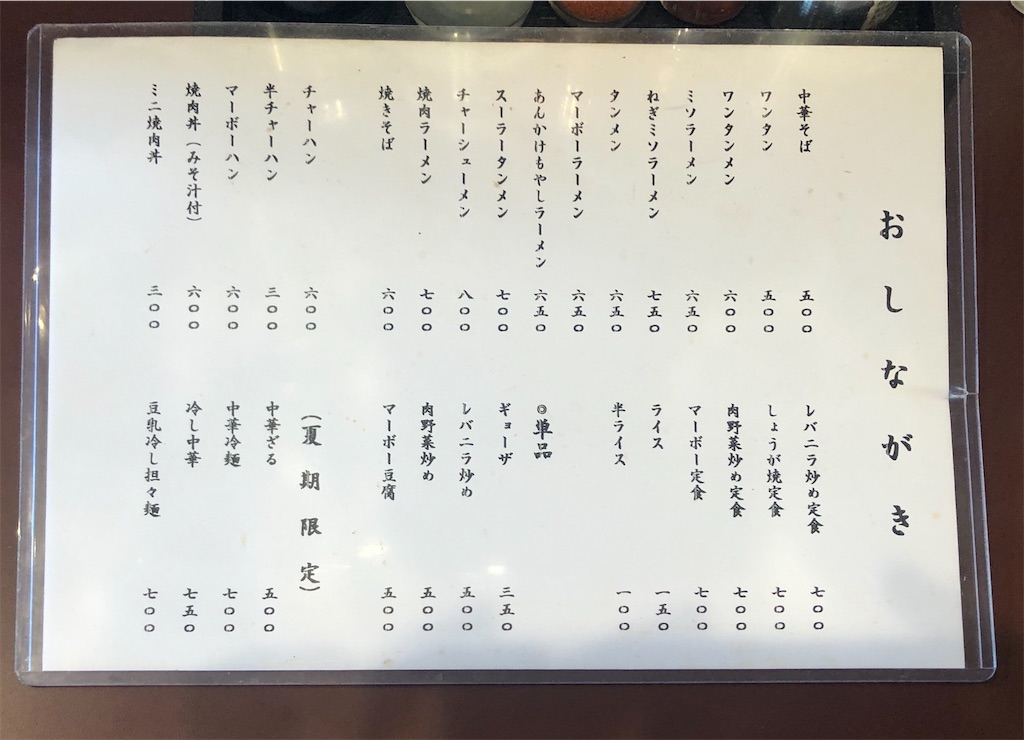 おしながき
中華そば 五〇〇
ワンタン 五〇〇
ワンタンメン 六〇〇
ミソラーメン 六五〇
ねぎミソラーメン 七五〇
タンメン 六五〇
マーボーラーメン 六五〇
あんかけもやしラーメン 六五〇
スーラータンメン 七〇〇
チャーシューメン 八〇〇
焼肉ラーメン 七〇〇
焼きそば 六〇〇
チャーハン 六〇〇
半チャーハン 三〇〇
マーボーハン 六〇〇
焼肉丼(みそ汁付) 六〇〇
ミニ焼肉丼 三〇〇
レバニラ炒め定食 七〇〇
しょうが焼定食 七〇〇
肉野菜炒め定食 七〇〇
マーボー定食 七〇〇
ライス 一五〇
半ライス 一〇〇
◎単品
ギョーザ 三五〇
レバニラ炒め 五〇〇
肉野菜炒め 五〇〇
マーボー豆腐 五〇〇
(夏期限定)
中華ざる 五〇〇
中華冷麺 七〇〇
冷し中華 七五〇
豆乳冷し担々麺 七〇〇